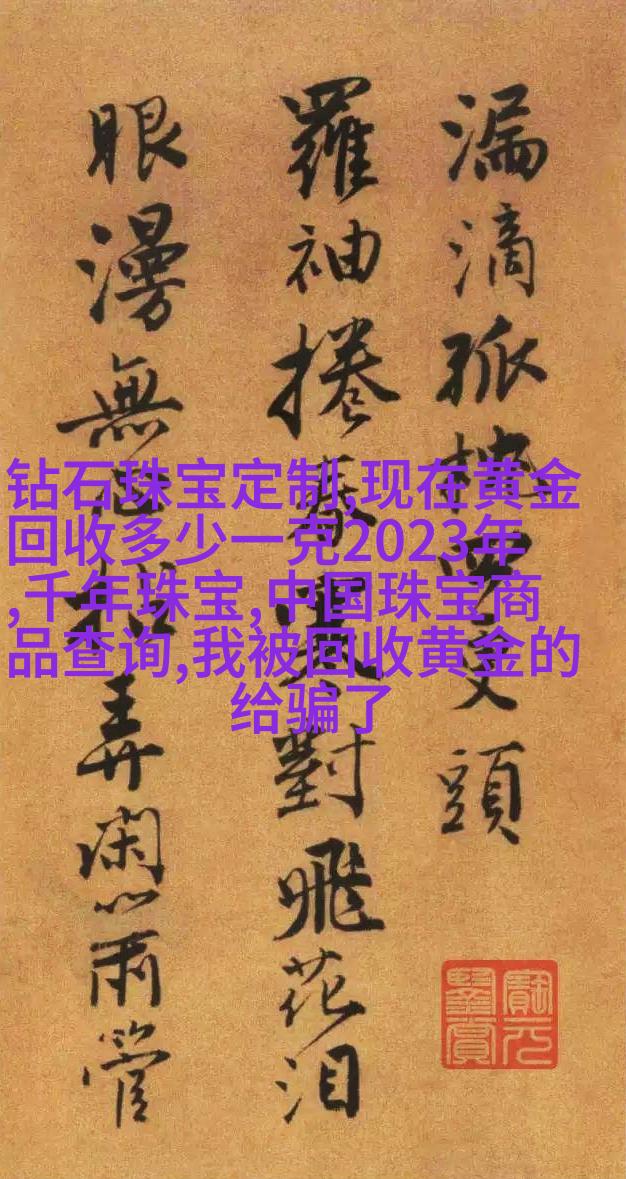 漏滴孤更頭
羅袖捲春對飛花泪
眼漫無弄閑心雨管
钻石珠宝定制,现在黄金
回收多少一克2023年
,千年珠宝,中国珠宝商
品查询,我被回收黄金的
给骗了